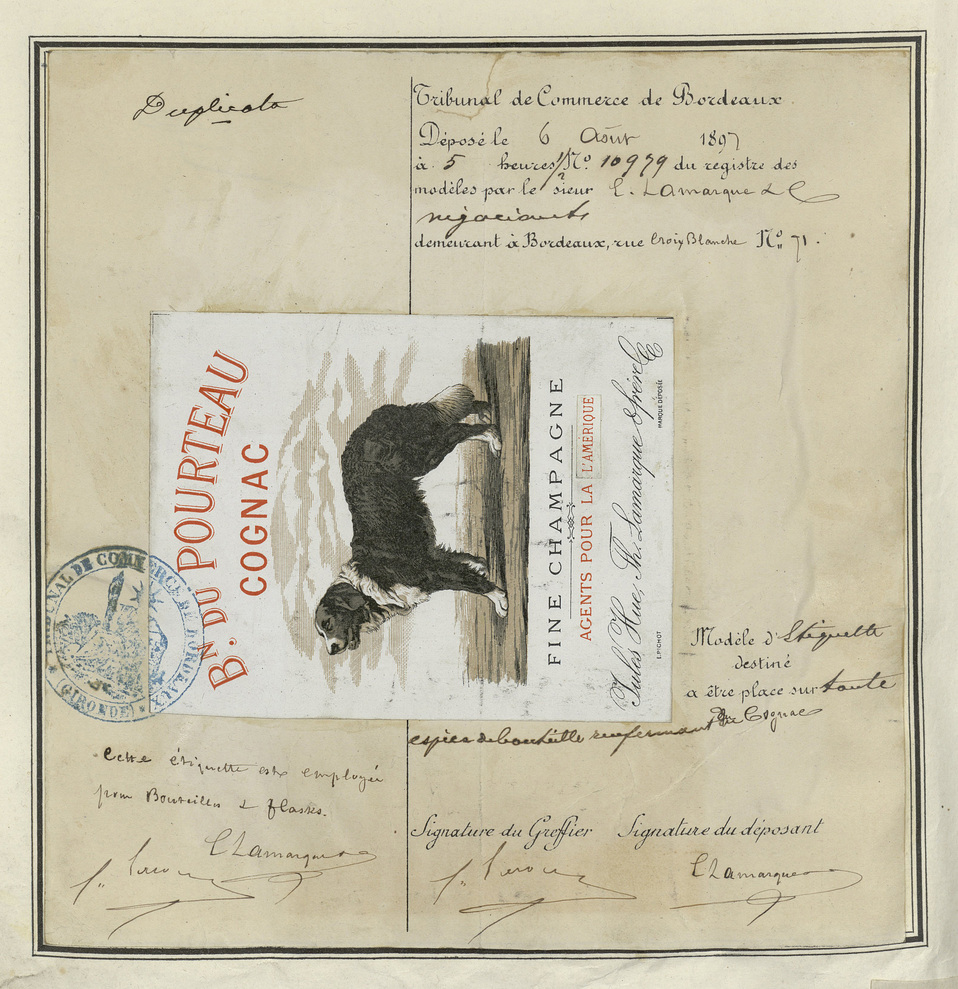 Duplicata
Tribunal de Commerce de Bordeaux.
Déposé le 6 Août 1897
à 5 heures No. 10979 du registre des
modèles par le sieur E. Lamarque & C
négociants
demeurant à Bordeaux, rue Croix Blanche No. 71.
Bn. DU POURTEAU
COGNAC
FINE CHAMPAGNE
AGENTS POUR LA L'AMERIQUE
Jules Hue, Th. Lamarque & frère & C
E. PICHOT
MARQUE DÉPOSÉE
TRIBUNAL DE COMMERCE DE BORDEAUX
(GIRONDE)
Modèle d'Etiquette
destiné
a être place sur toute
espèce de bouteille renfermant du Cognac
Cette étiquette est employée
pour Bouteilles & flasks.
E Lamarque
Signature du Greffier Signature du déposant
E Lamarque